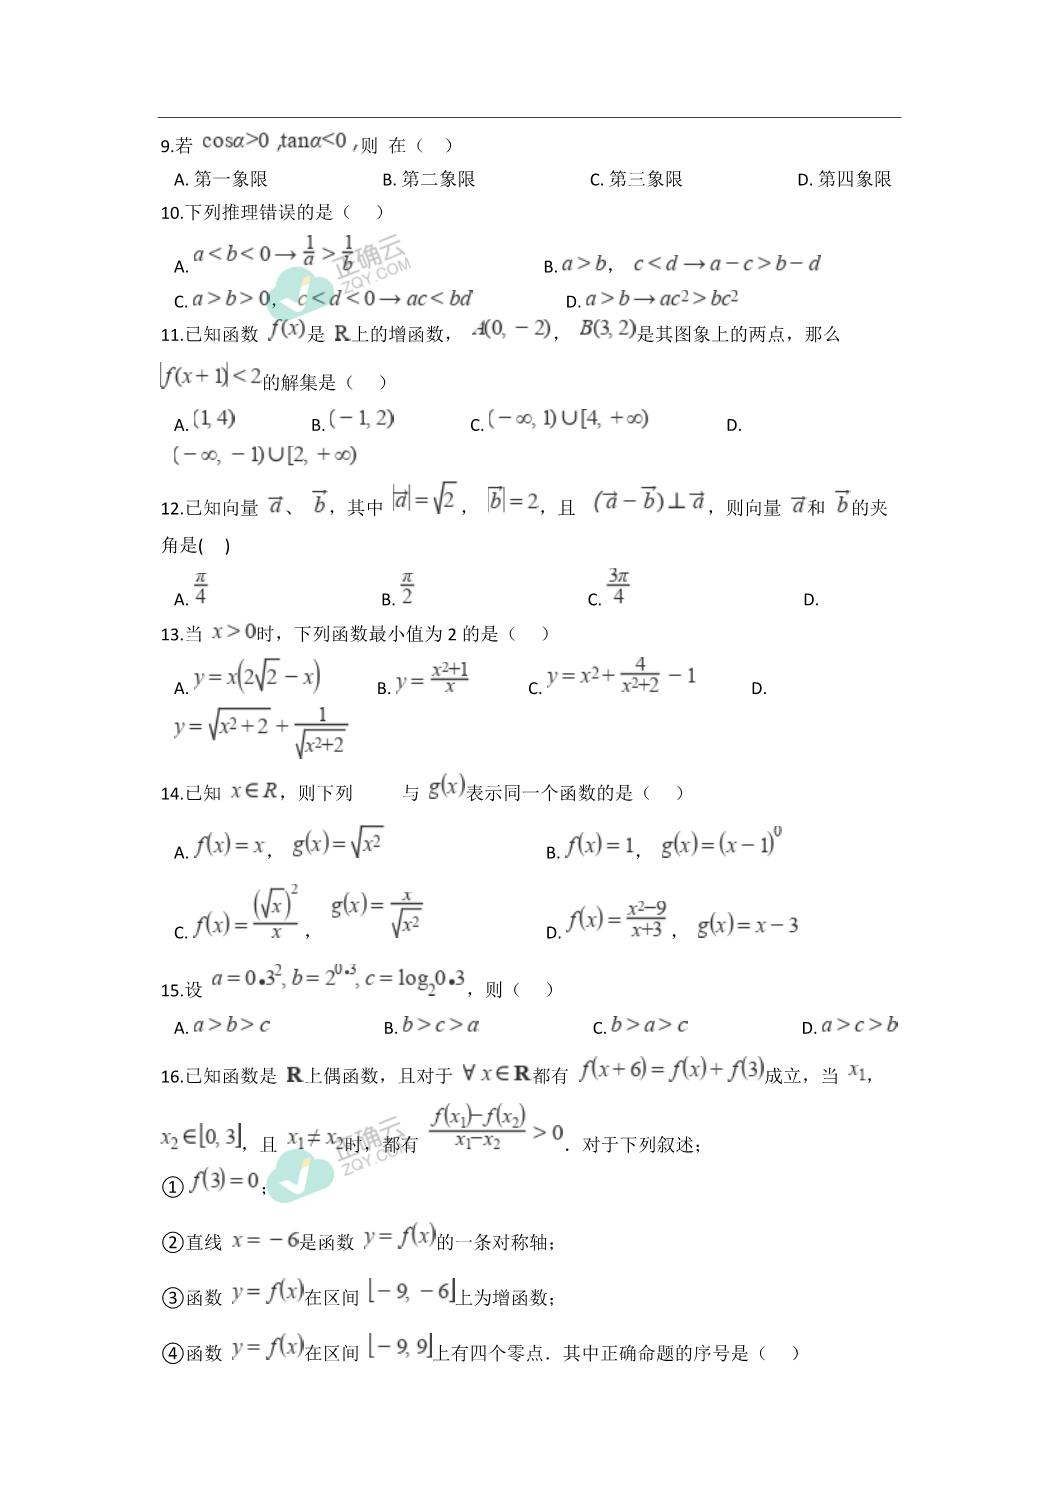 9.若 cosα>0 ,tanα<0 ,则 在（ ）
A. 第一象限 B. 第二象限 C. 第三象限 D. 第四象限
10.下列推理错误的是（ ）
A. a < b < 0 → 1/a > 1/b B. a > b， c < d → a − c > b − d
C. a > b > 0， c < d < 0 → ac < bd D. a > b → ac² > bc²
正确云
ZQY.COM
11.已知函数 f(x) 是 R 上的增函数， A(0, − 2)， B(3, 2) 是其图象上的两点，那么
|f(x + 1)| < 2 的解集是（ ）
A. (1, 4) B. ( − 1, 2) C. ( − ∞, 1) ∪ [4, + ∞) D.
( − ∞, − 1) ∪ [2, + ∞)
12.已知向量 a⃗、 b⃗，其中 |a⃗| = √2， |b⃗| = 2，且 (a⃗ − b⃗) ⊥ a⃗，则向量 a⃗ 和 b⃗ 的夹
角是( )
A. π/4 B. π/2 C. 3π/4 D.
13.当 x > 0 时，下列函数最小值为 2 的是（ ）
A. y = x(2√2 − x) B. y = (x²+1)/x C. y = x² + 4/(x²+2) − 1 D.
y = √(x² + 2) + 1/√(x²+2)
14.已知 x ∈ R，则下列 与 g(x) 表示同一个函数的是（ ）
A. f(x) = x， g(x) = √(x²) B. f(x) = 1， g(x) = (x − 1)⁰
C. f(x) = (√x)²/x， g(x) = x/√(x²) D. f(x) = (x²−9)/(x+3)， g(x) = x − 3
15.设 a = 0.3², b = 2^0.3, c = log₂0.3，则（ ）
A. a > b > c B. b > c > a C. b > a > c D. a > c > b
16.已知函数是 R 上偶函数，且对于 ∀ x ∈ R 都有 f(x + 6) = f(x) + f(3) 成立，当 x₁，
x₂ ∈ [0, 3]，且 x₁ ≠ x₂ 时，都有 (f(x₁)−f(x₂))/(x₁−x₂) > 0．对于下列叙述；
正确云
ZQY.COM
① f(3) = 0；
②直线 x = − 6 是函数 y = f(x) 的一条对称轴；
③函数 y = f(x) 在区间 [ − 9, − 6] 上为增函数；
④函数 y = f(x) 在区间 [ − 9, 9] 上有四个零点．其中正确命题的序号是（ ）